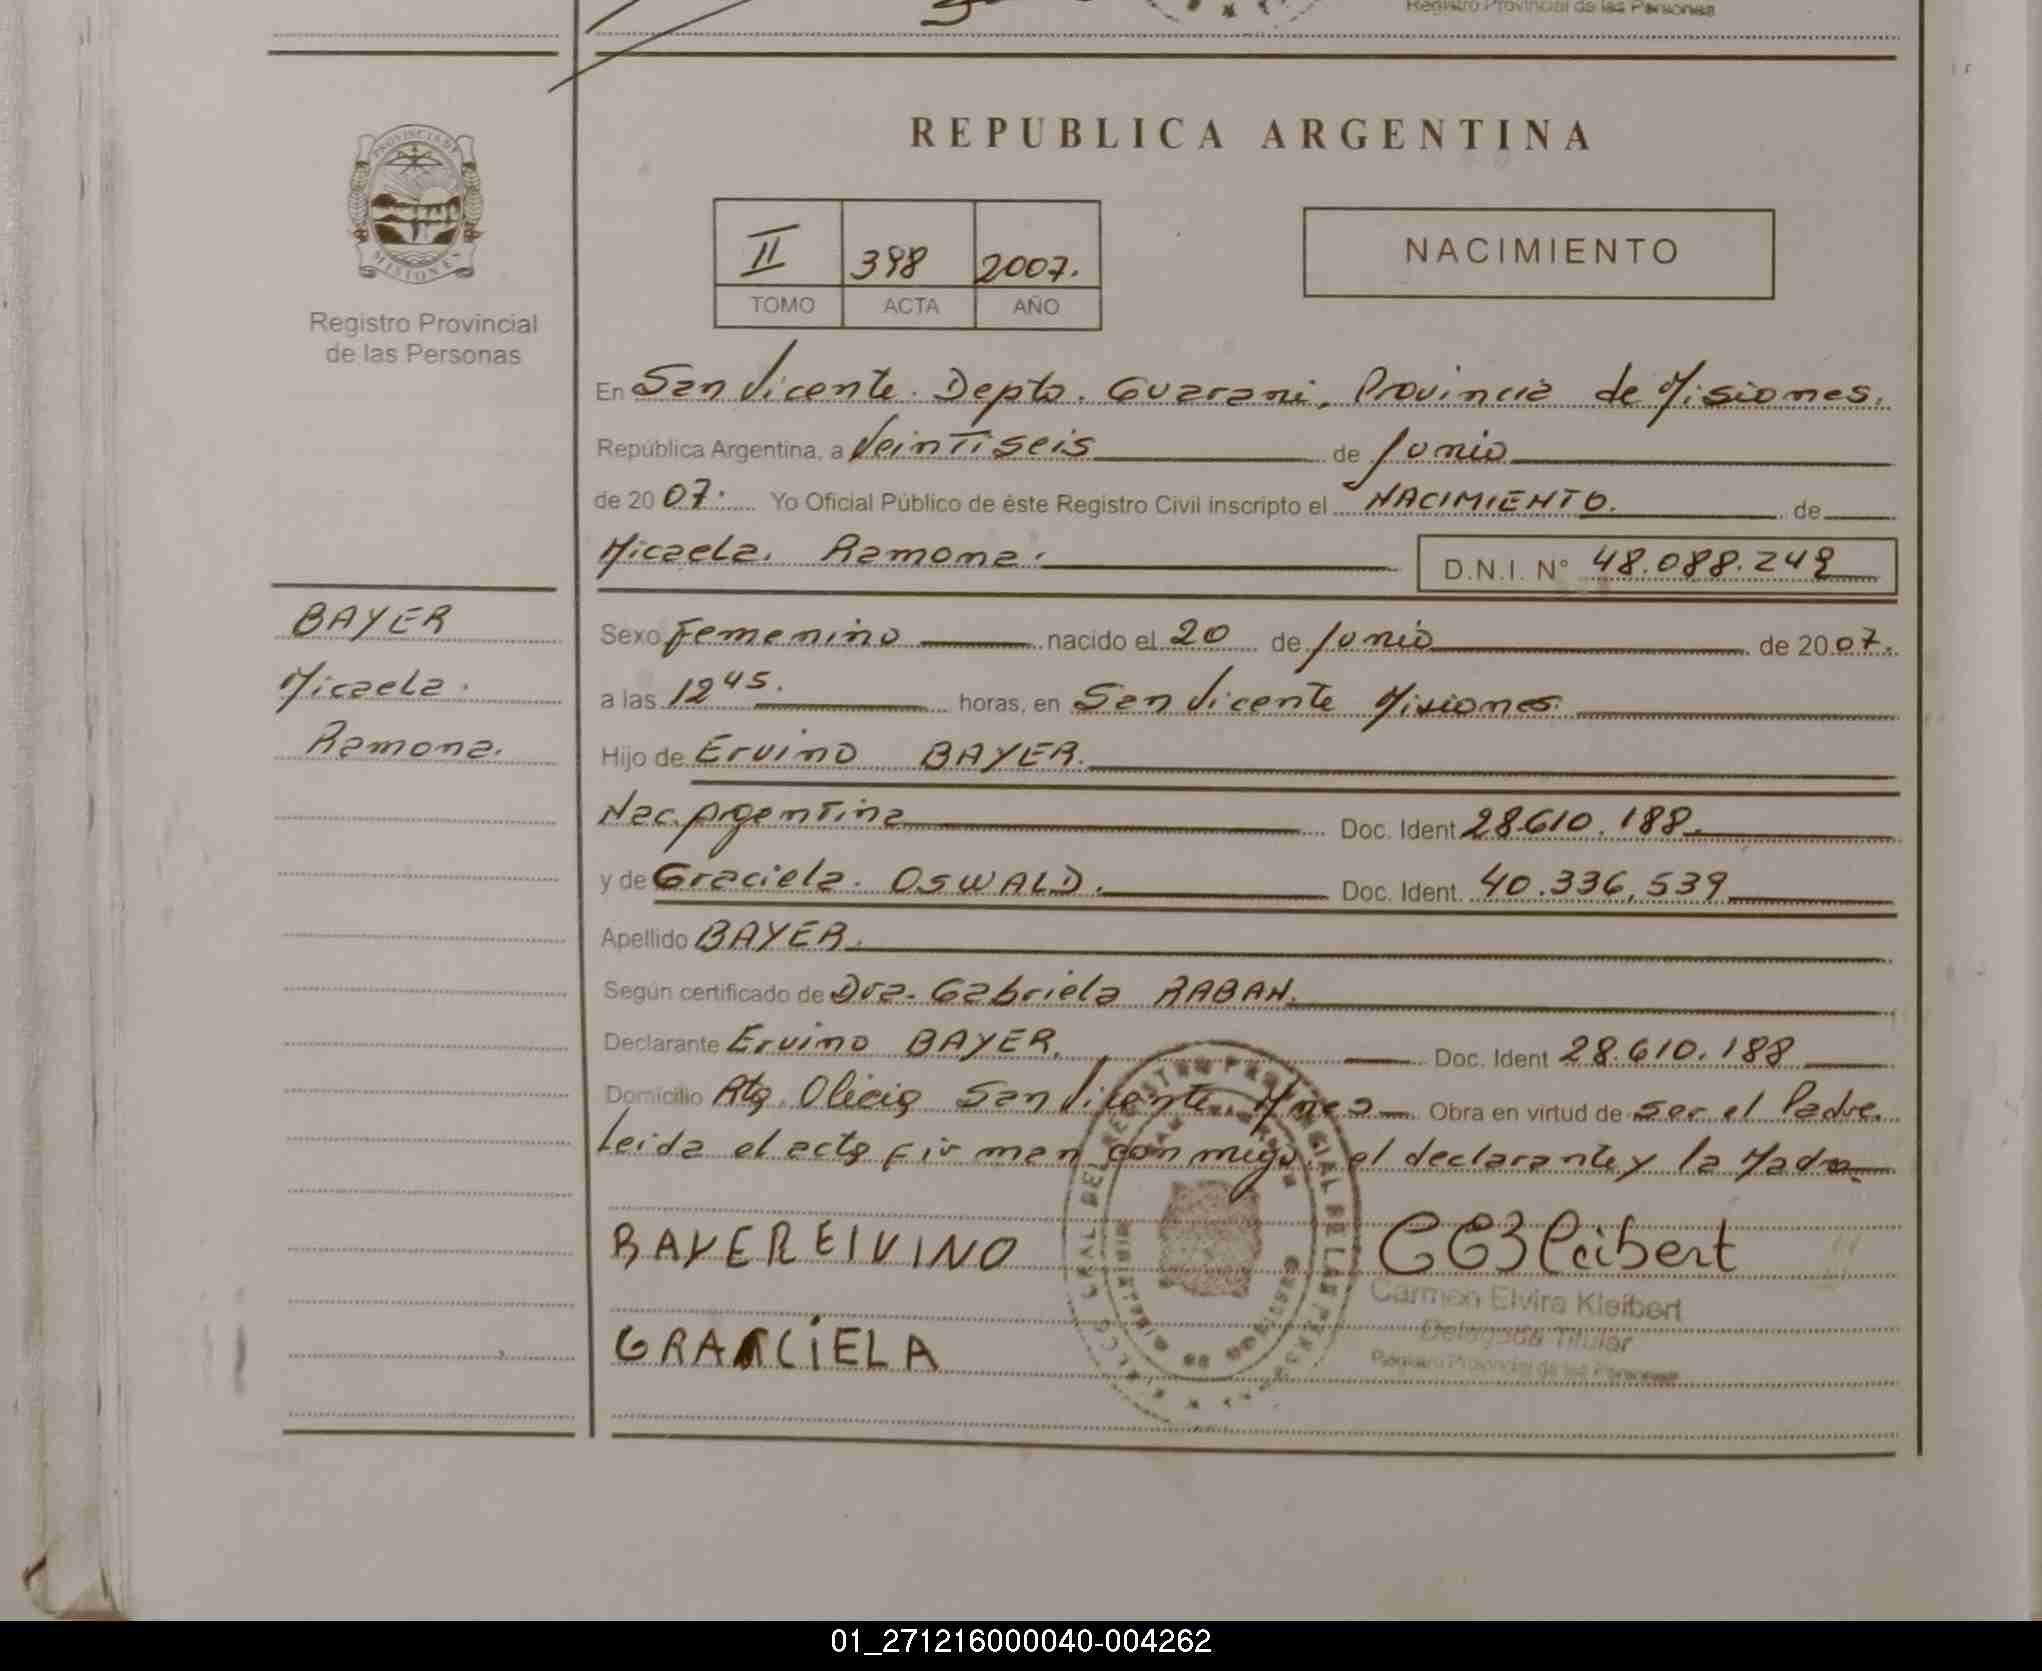 Registro Provincial de las Personas
PROVINCIA DE
MISIONES
Registro Provincial
de las Personas
REPUBLICA ARGENTINA
II 398 2007.
TOMO ACTA AÑO
NACIMIENTO
En San Vicente. Depto. Guarani, Provincia de Misiones.
República Argentina, a Veintiseis de Junio
de 20 07. Yo Oficial Público de éste Registro Civil inscripto el NACIMIENTO. de
Micaela. Ramona. D.N.I. N° 48.088.249
BAYER
Micaela.
Ramona.
Sexo Femenino nacido el 20 de Junio de 20 07.
a las 12 45. horas, en San Vicente Misiones.
Hijo de Ervino BAYER.
Nac. Argentina Doc. Ident 28.610.188.
y de Graciela. OSWALD. Doc. Ident. 40.336.539
Apellido BAYER.
Según certificado de Dra. Gabriela RABAN.
Declarante Ervino BAYER. Doc. Ident 28.610.188
Domicilio Rta. Olicia San Vicente Mnes Obra en virtud de ser el Padre.
Leida el acta firman conmigo el declarante y la Madre.
BAYER EIVINO
GRACIELA
CEKleibert
Carmen Elvira Kleibert
Delegada Titular
Registro Provincial de las Personas
01_271216000040-004262